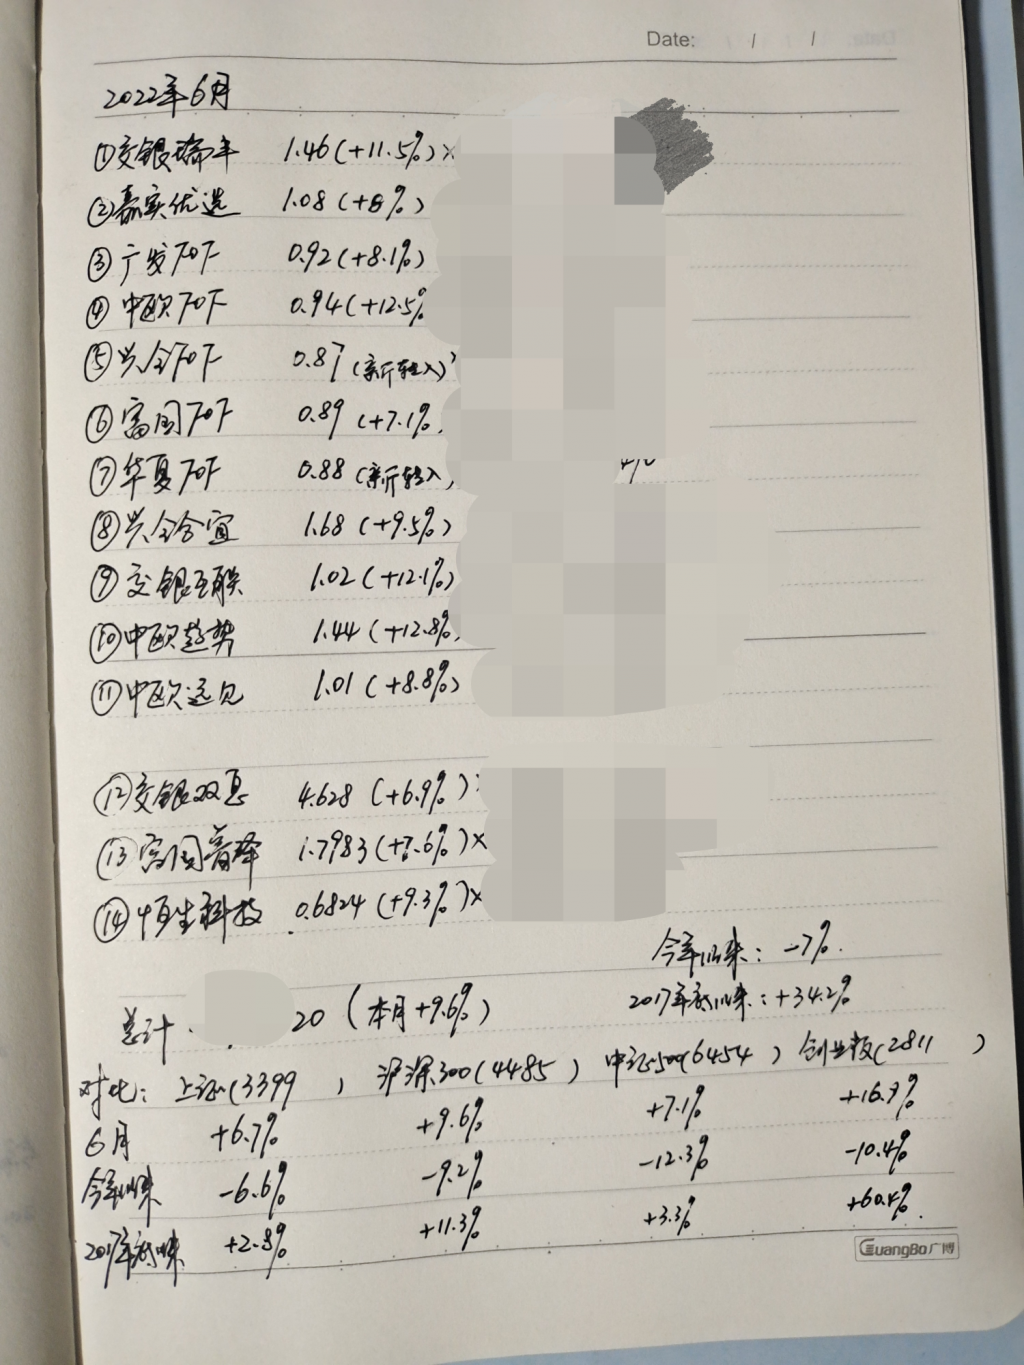 Date: / / /
2022年6月
①交银瑞丰 1.46(+11.5%)×
②嘉实优选 1.08(+8%)
③广发FOF 0.92(+8.1%)
④中欧FOF 0.94(+12.5%
⑤兴全FOF 0.87(新转入)
⑥富国FOF 0.89(+7.1%
⑦华夏FOF 0.88(新转入
⑧兴全合宜 1.68(+9.5%)
⑨交银互联 1.02(+12.1%)
⑩中欧趋势 1.44(+12.8%
⑪中欧远见 1.01(+8.8%)
⑫交银双息 4.628(+6.9%)
⑬富国 1.7983(+7.6%)×
⑭恒生科技 0.6824(+9.3%)×
今年以来:-7%.
总计 20(本月+9.6%) 2017年底以来:+34.2%
对比: 上证(3399 ) 沪深300(4485 ) 中证500(6454 ) 创业板(2811 )
6月 +6.7% +9.6% +7.1% +16.9%
今年以来 -6.6% -9.2% -12.3% -10.4%
2017年底以来 +2.8% +11.3% +3.3% +60.4%
GuangBo广博